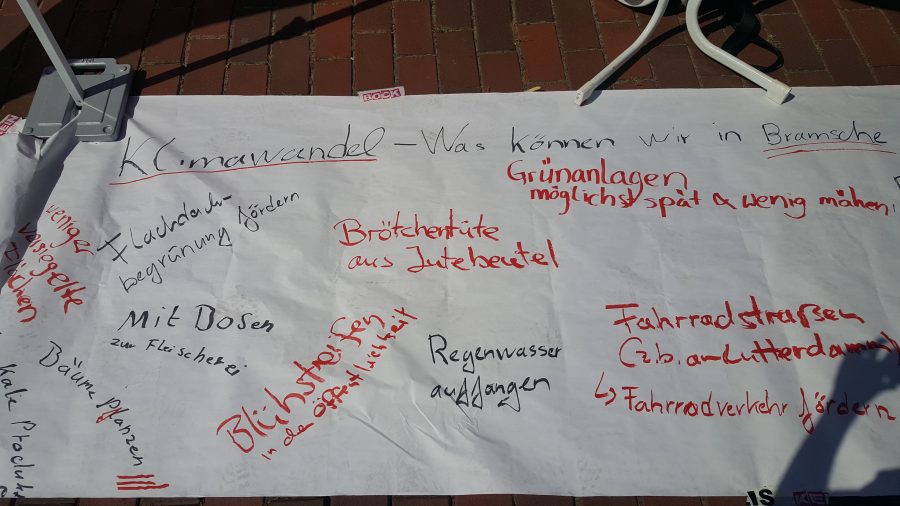 BOCK
Klimawandel - Was können wir in Bramsche
Grünanlagen
möglichst spät & wenig mähen!
Flachdach-
begrünung fördern
weniger
versiegelte
Flächen
Brötchentüte
aus Jutebeutel
Mit Dosen
zur Fleischerei
Blühstreifen
in der Öffentlichkeit
Regenwasser
auffangen
Fahrradstraßen
(z.b. am Lutterdamm)
↳ Fahrradverkehr fördern
Bäume pflanzen